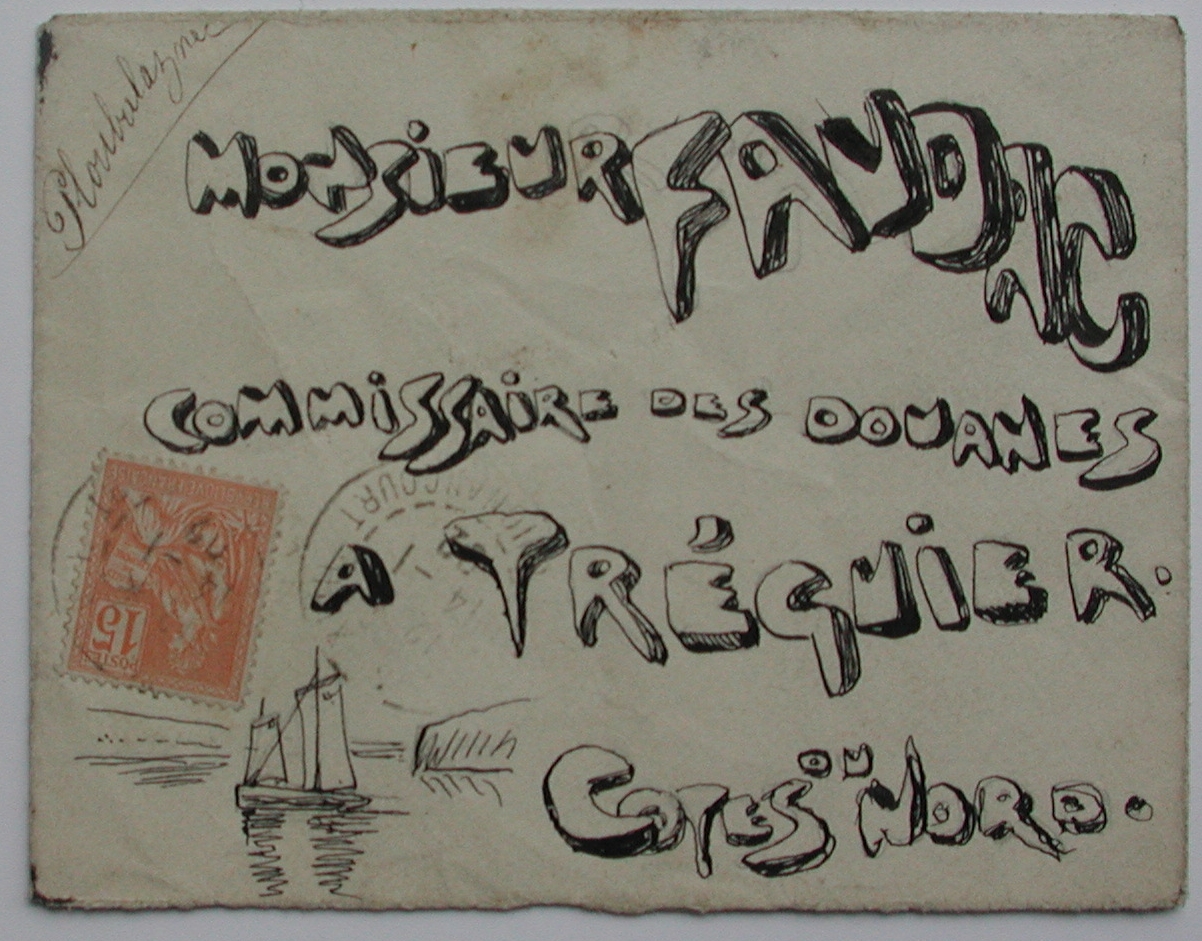 Ploubalaznec
MONSIEUR FAVDNC
COMMISSAIRE DES DOUANES
A TRÉGUIER.
COTES DU NORD.
REPUBLIQUE FRANCAISE
15
POSTES